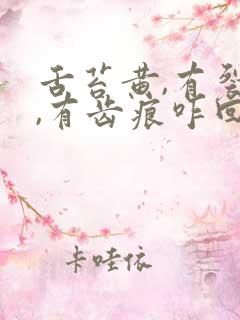 舌苔黄,有裂
,有齿痕咋回
卡哇依